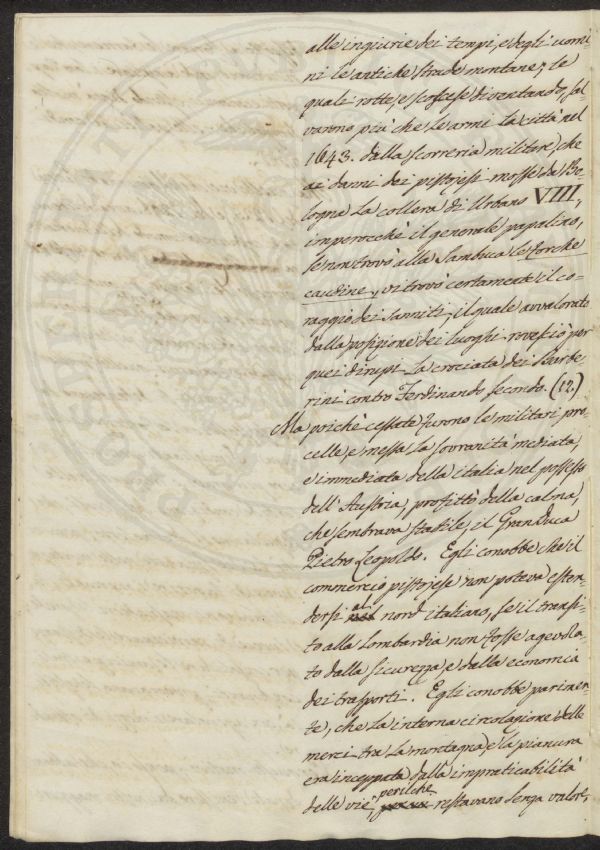 alle ingiurie dei tempi, e degli uomi
ni le antiche strade montane; le
quali rotte, e scoscese diventando, sal-
varono più che le armi la città nel
1643. dalla scorreria militare, che
ai danni dei pistojesi mosse da Bo-
logna la collera di Urbano VIII,
imperocchè il generale papalino,
se non trovò alla Sambuca le forche
caudine, vi trovò certamente il co-
raggio dei Sanniti, il quale avvalorato
dalla posizione dei luoghi rovesciò per
quei dirupi la crociata dei Barbe
rini contro Ferdinando secondo. (12.)
Ma poichè cessate furono le militari pro-
celle, e messa la sovranità mediata,
e immediata della italia nel possesso
dell' Austria, profittò della calma,
che sembrava stabile, il GranDuca
Pietro Leopoldo. Egli conobbe che il
commercio pistojese non poteva esten-
dersi al nord italiano, se il transi-
to alla Lombardia non fosse agevola-
to dalla sicurezza, e dalla economia
dei trasporti. Egli conobbe parimen-
te, che la interna circolazione delle
merci tra la montagna, e la pianura
era inceppata dalla impraticabilità
delle vie, perilchè restavano senza valore,
PROSPERITATI PUBLICAE